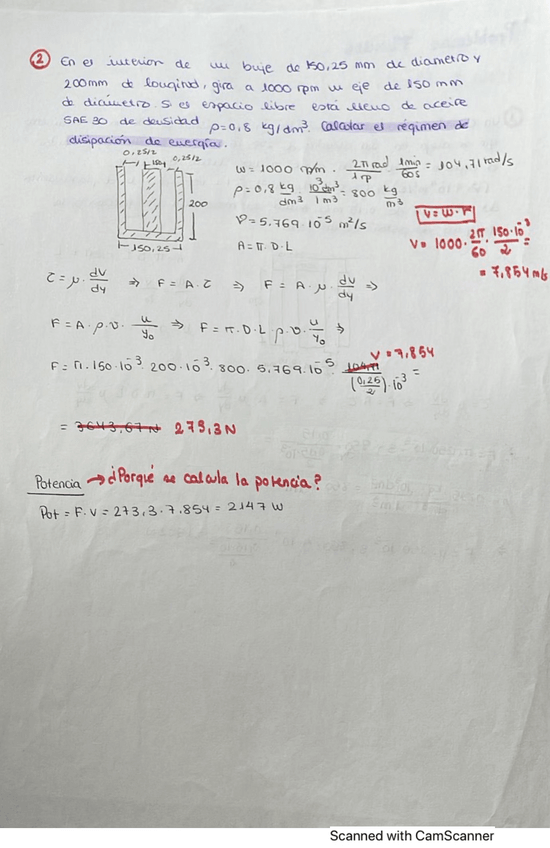 2 En el interior de un buje de 150,25 mm de diametro y
200mm de longitud, gira a 1000 rpm un eje de 150 mm
de diámetro. Si el espacio libre está lleno de aceite
SAE 30 de densidad ρ=0,8 kg/dm³. Calcular el régimen de
disipación de energía.
0,25/2 150 0,25/2
200
150,25
W = 1000 rpm · 2π rad / 1 rp · 1 min / 60 s = 104,71 rad/s
ρ = 0,8 kg/dm³ · 10³ dm³ / 1 m³ = 800 kg/m³
ν = 5.769·10⁻⁵ m²/s
A = π·D·L
V = W·r
V = 1000 · 2π/60 · 150·10⁻³/2 =
= 7,854 m/s
τ = μ · dv/dy ⇒ F = A·τ ⇒ F = A·μ · dv/dy ⇒
F = A·ρ·ν· u/y₀ ⇒ F = π·D·L·ρ·ν· u/y₀ ⇒
V = 7,854
F = π·150·10⁻³·200·10⁻³·800·5,769·10⁻⁵· 104,71 / (0,25/2)·10⁻³ =
= 3643,67 N 273,3 N
Potencia → ¿Porqué se calcula la potencia?
Pot = F·V = 273,3·7,854 = 2147 W
Scanned with CamScanner